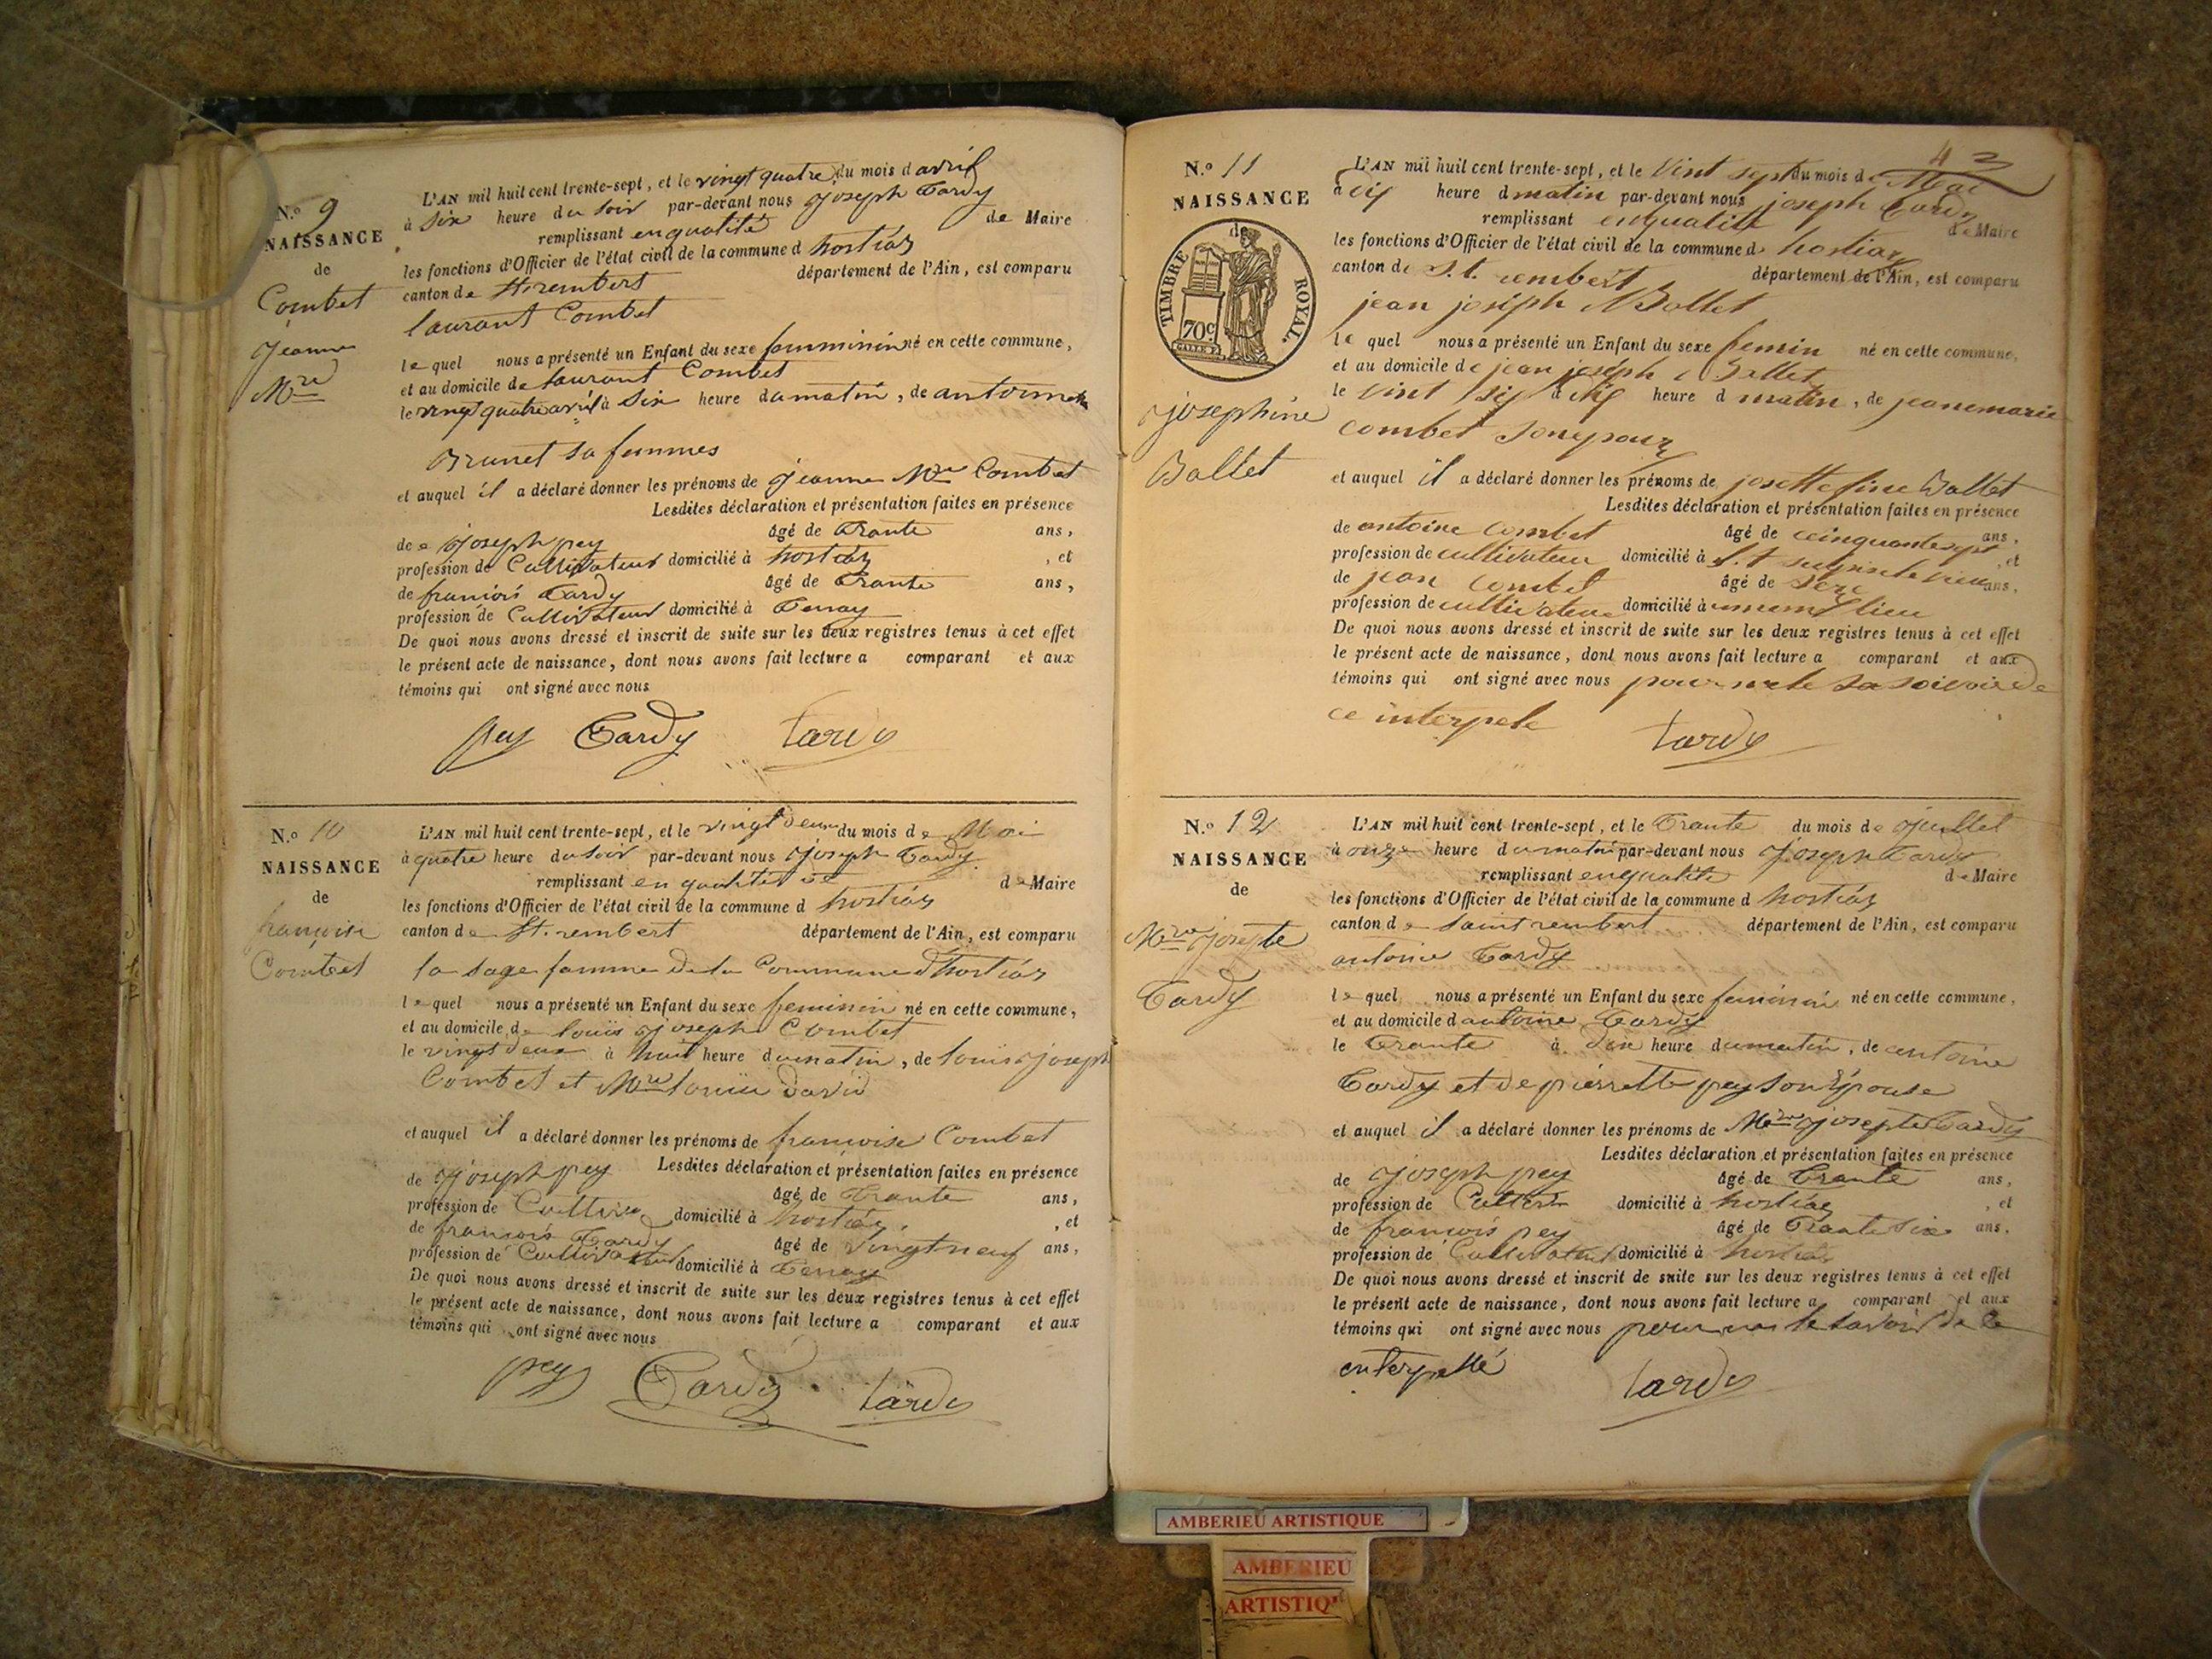 N.o 9
NAISSANCE
de
Combet
Jeanne
Mrie
L'AN mil huit cent trente-sept, et le vingt quatre du mois d avril
à Six heure du Soir par-devant nous Joseph Tardy
remplissant en qualité de Maire
les fonctions d'Officier de l'état civil de la commune d hostiaz
canton de St. rembert département de l'Ain, est comparu
laurant Combet
le quel nous a présenté un Enfant du sexe femminin né en cette commune,
et au domicile de laurant Combet
le vingt quatre avril à Six heure du matin, de
Brunet sa femmes
et auquel il a déclaré donner les prénoms de Jeanne Mrie Combet
Lesdites déclaration et présentation faites en présence
de Joseph pey âgé de Trante ans,
profession de Cultivateur domicilié à hostiaz , et
de françois Tardy âgé de Trante ans,
profession de Cultivateur domicilié à Tenay
De quoi nous avons dressé et inscrit de suite sur les deux registres tenus à cet effet
le présent acte de naissance, dont nous avons fait lecture a comparant et aux
témoins qui ont signé avec nous
pey Tardy tardy
N.o 10
NAISSANCE
de
françoise
Combet
L'AN mil huit cent trente-sept, et le vingt deux du mois de Mai
à quatre heure du soir par-devant nous Joseph Tardy
remplissant en qualité de de Maire
les fonctions d'Officier de l'état civil de la commune d hostiaz
canton de St. rembert département de l'Ain, est comparu
la sage famme de la Commune d'hostiaz
le quel nous a présenté un Enfant du sexe feminin né en cette commune,
et au domicile de louis joseph Combet
le vingt deux à huit heure du matin, de louis joseph
Combet et Mrie louise david
et auquel il a déclaré donner les prénoms de françoise Combet
Lesdites déclaration et présentation faites en présence
de Joseph pey âgé de Trante ans,
profession de domicilié à hostiaz , et
de françois Tardy âgé de vingt neuf ans,
profession de Cultivateur domicilié à Tenay
De quoi nous avons dressé et inscrit de suite sur les deux registres tenus à cet effet
le présent acte de naissance, dont nous avons fait lecture a comparant et aux
témoins qui ont signé avec nous
pey Tardy tardy
43
N.o 11
NAISSANCE
de
TIMBRE ROYAL.
70c
josephine
Ballet
L'AN mil huit cent trente-sept, et le vint sept du mois de Mai
à heure d matin par-devant nous joseph tardy
remplissant en qualité de Maire
les fonctions d'Officier de l'état civil de la commune d hostiaz
canton de S.t. rembert département de l'Ain, est comparu
jean joseph Ballet
le quel nous a présenté un Enfant du sexe femin né en cette commune,
et au domicile de jean joseph Ballet
le vint à heure d matin, de jeanemarie
combet
et auquel il a déclaré donner les prénoms de josettefine Ballet
Lesdites déclaration et présentation faites en présence
de antoine combet âgé de cinquante sept ans,
profession de cultivateur domicilié à et
de jean combet âgé de ans,
profession de cultivateur domicilié à lieu
De quoi nous avons dressé et inscrit de suite sur les deux registres tenus à cet effet
le présent acte de naissance, dont nous avons fait lecture a comparant et aux
témoins qui ont signé avec nous pour de
ce interpele tardy
N.o 12
NAISSANCE
de
Mrie josepte
Tardy
L'AN mil huit cent trente-sept, et le Trante du mois de Juillet
à onze heure du matin par-devant nous Joseph Tardy
remplissant en qualité de Maire
les fonctions d'Officier de l'état civil de la commune d hostiaz
canton de Saint rembert département de l'Ain, est comparu
antoine Tardy
le quel nous a présenté un Enfant du sexe feminin né en cette commune,
et au domicile d antoine Tardy
le Trante à heure du matin, de antoine
Tardy et de pierrette pey son Épouse
et auquel il a déclaré donner les prénoms de Mrie josepte Tardy
Lesdites déclaration et présentation faites en présence
de Joseph pey âgé de Trante ans,
profession de domicilié à hostiaz , et
de françois pey âgé de Trante six ans,
profession de Cultivateur domicilié à hostiaz
De quoi nous avons dressé et inscrit de suite sur les deux registres tenus à cet effet
le présent acte de naissance, dont nous avons fait lecture a comparant et aux
témoins qui ont signé avec nous pour de ce
enterpellé tardy
AMBERIEU ARTISTIQUE
AMBERIEU
ARTISTIQ